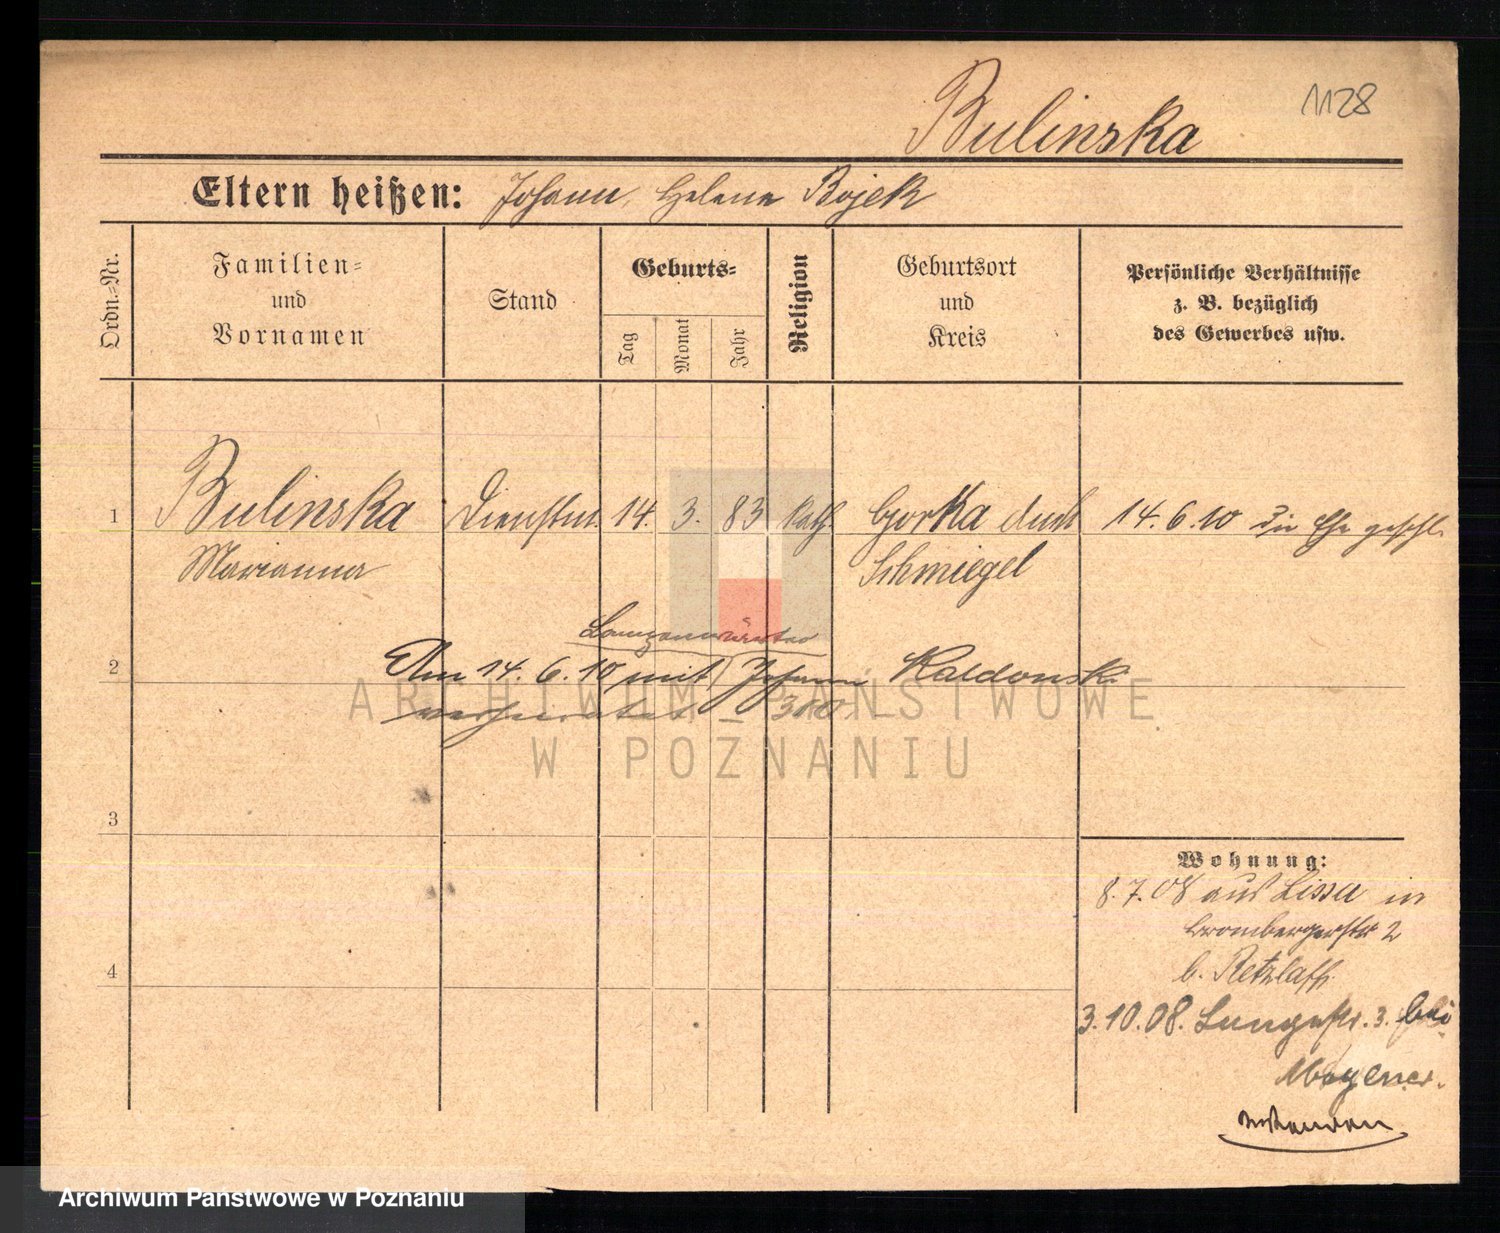 1128
Bulinska
Eltern heißen: Johann, Helene Bojek
Ordn.-Nr.
Familien-
und
Vornamen
Stand
Geburts-
Tag
Monat
Jahr
Religion
Geburtsort
und
Kreis
Persönliche Verhältnisse
z. B. bezüglich
des Gewerbes usw.
1
Bulinska
Marianna
Dienstm.
14.
3.
83
kath.
Gorka
Schmiegel
14.6.10 die Ehe geschl.
2
Am 14.6.10 mit Johann Kaldonski
verheiratet
3
Wohnung:
8.7.08 aus Lissa in
Brombergerstr 2
b. Retzlaff.
4
3.10.08. Langestr. 3. bei
ARCHIWUM PAŃSTWOWE
W POZNANIU
Archiwum Państwowe w Poznaniu